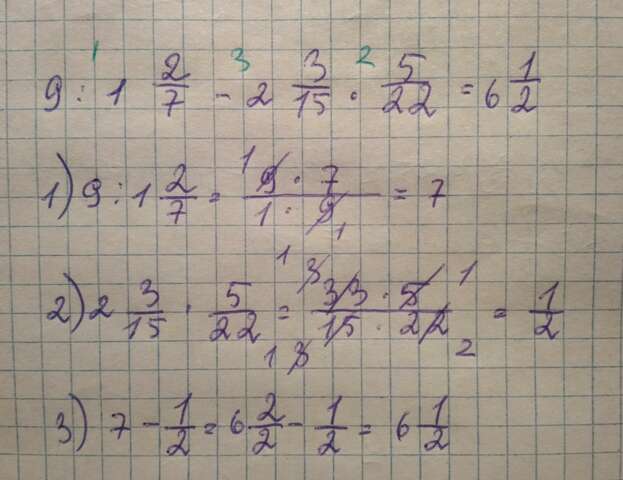 1 3 2
9 : 1 2/7 - 2 3/15 · 5/22 = 6 1/2
1) 9 : 1 2/7 = (9 · 7)/(1 · 9) = 7
2) 2 3/15 · 5/22 = (33 · 5)/(15 · 22) = 1/2
3) 7 - 1/2 = 6 2/2 - 1/2 = 6 1/2